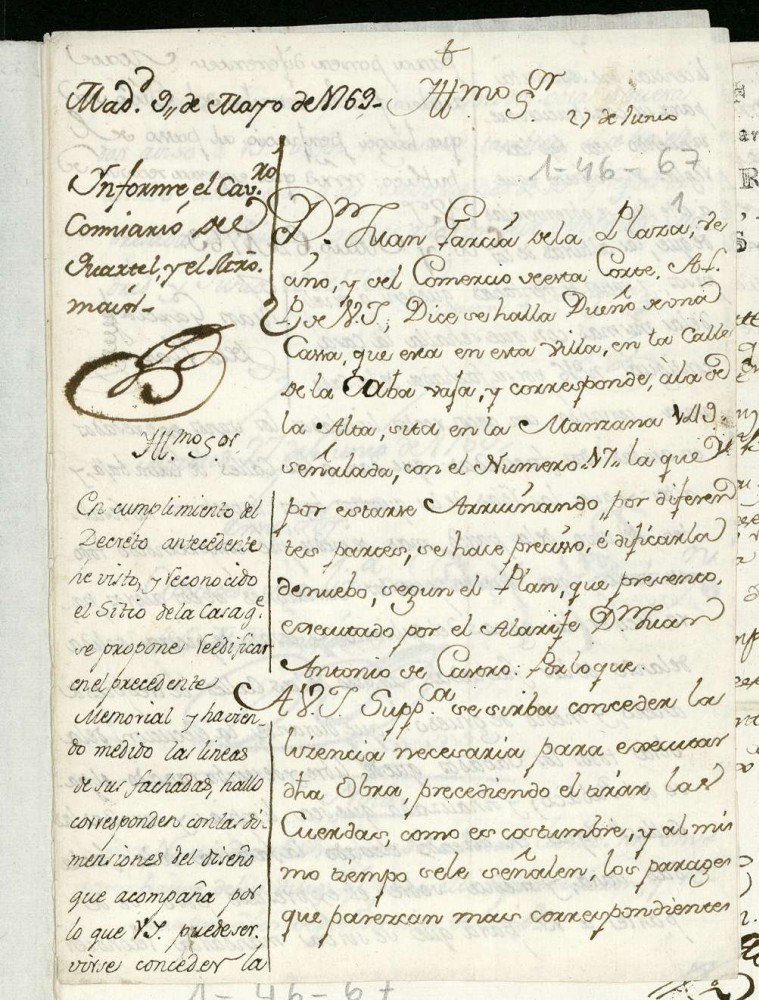 †
Mad.d 9,, de Mayo de 1769-
Yll.mo S.or
27 de Junio
1-46-67
1
Ynforme el Cav.ro
Comisario, del
Quartel, y el Mro.
maior-
Yll.mo S.or
En cumplimiento del
Decreto antecedente
he visto, y reconocido
el Sitio de la Casa q.e
se propone reedificar
en el precedente
Memorial y havien-
do medido las lineas
de sus fachadas, hallo
corresponden con las di-
mensiones del diseño
que acompaña por
lo que V.I. puede ser-
virse conceder la
D.n Juan Garcia de la Plaza, ve
cino, y del Comercio de esta Corte, A L.
P. de V.I.; Dice se halla Dueño de una
Cassa, que esta en esta Villa, en la Calle
de la Caba vaja, y corresponde, à la de
la Alta, sita en la Manzana
señalada, con el Numero 17,, la que
por estarse Arruinando,, por diferen
tes partes, se hace preciso, é dificarla
de nuebo, segun el Plan, que presento,
executado por el Alarife D.n Juan
Antonio de Castro: Por lo que
A V.I. Supp.ca se sirba conceder la
lizencia necesaria para executar
dha Obra, precediendo el tirar las
Cuerdas, como es costumbre, y al mis
mo tiempo se le señalen, los parages
que parezcan mas correspondientes
1-46-67